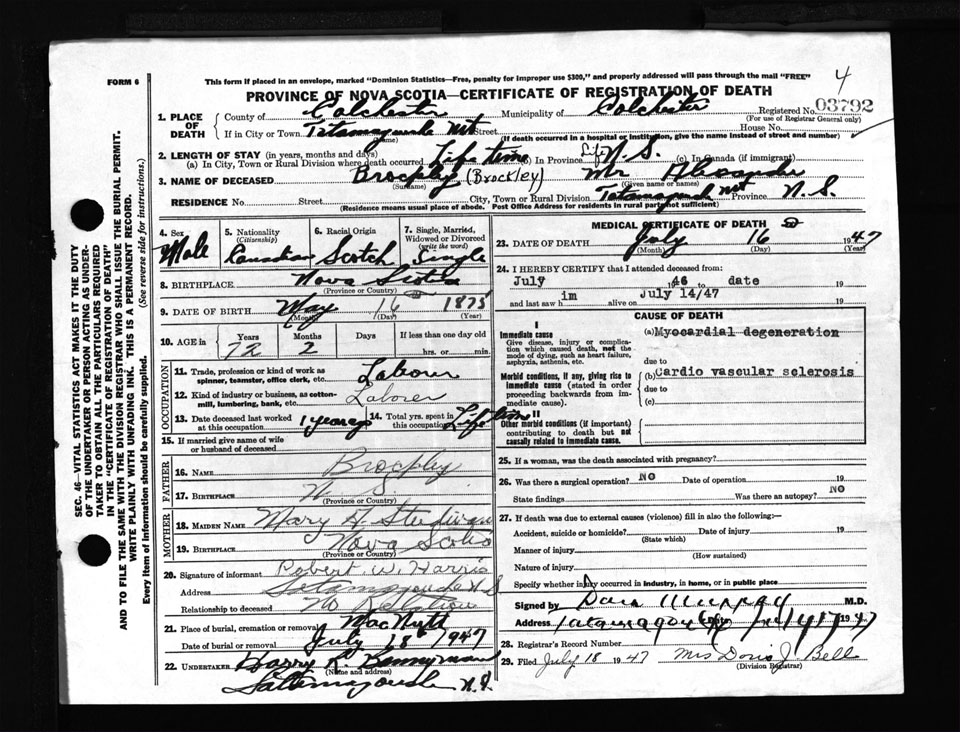 4
FORM 6
This form if placed in an envelope, marked "Dominion Statistics—Free, penalty for improper use $300," and properly addressed will pass through the mail "FREE"
PROVINCE OF NOVA SCOTIA—CERTIFICATE OF REGISTRATION OF DEATH
Registered No. 03792
(For use of Registrar General only)
1. PLACE OF DEATH
County of Colchester Municipality of Colchester
If in City or Town Tatamagouche Mt Street House No.
(If death occurred in a hospital or institution, give the name instead of street and number)
2. LENGTH OF STAY (in years, months and days)
(a) In City, Town or Rural Division where death occurred Life time (b) In Province Life N. S. (c) In Canada (if immigrant)
3. NAME OF DECEASED Brockley (Brockley) Mr
(Surname) (Given name or names)
RESIDENCE No. Street City, Town or Rural Division Tatamagouche Mt Province N. S.
(Residence means usual place of abode. Post Office Address for residents in rural parts not sufficient)
4. Sex
Male
5. Nationality
(Citizenship)
Canadian
6. Racial Origin
Scotch
7. Single, Married, Widowed or Divorced
(write the word)
Single
8. BIRTHPLACE Nova Scotia
(Province or Country)
9. DATE OF BIRTH May 16 1875
(Month) (Day) (Year)
10. AGE in Years Months Days If less than one day old
72 2 hrs. or min.
OCCUPATION
11. Trade, profession or kind of work as spinner, teamster, office clerk, etc. Laborer
12. Kind of industry or business, as cotton-mill, lumbering, bank, etc. Laborer
13. Date deceased last worked at this occupation 1 year ago
14. Total yrs. spent in this occupation Life time
15. If married give name of wife or husband of deceased
FATHER
16. NAME Brockley
17. BIRTHPLACE N S
(Province or Country)
MOTHER
18. MAIDEN NAME Mary A.
19. BIRTHPLACE Nova Scotia
(Province or Country)
20. Signature of informant Robert W. Harris
Address Tatamagouche N S
Relationship to deceased No Relation
21. Place of burial, cremation or removal MacNutt
Date of burial or removal July 18 1947
22. UNDERTAKER Harry R.
(Name and address)
Tatamagouche N. S.
MEDICAL CERTIFICATE OF DEATH
23. DATE OF DEATH July 16 1947
(Month) (Day) (Year)
24. I HEREBY CERTIFY that I attended deceased from:
July 1946 to date 19
and last saw him alive on July 14/47 19
CAUSE OF DEATH
I
Immediate cause
Give disease, injury or complication which caused death, not the mode of dying, such as heart failure, asphyxia, asthenia, etc.
(a) Myocardial degeneration
due to
Morbid conditions, if any, giving rise to immediate cause (stated in order proceeding backwards from immediate cause).
(b) Cardio vascular sclerosis
due to
(c)
II
Other morbid conditions (if important) contributing to death but not causally related to immediate cause.
25. If a woman, was the death associated with pregnancy?
26. Was there a surgical operation? NO Date of operation 19
State findings Was there an autopsy? NO
27. If death was due to external causes (violence) fill in also the following:—
Accident, suicide or homicide? Date of injury 19
(State which)
Manner of injury
(How sustained)
Nature of injury
Specify whether injury occurred in industry, in home, or in public place
Signed by Dan Murray M.D.
Address Tatamagouche Date 1947
28. Registrar's Record Number
29. Filed July 18 1947 Mrs Doris J. Bell
(Division Registrar)
SEC. 46—VITAL STATISTICS ACT MAKES IT THE DUTY
OF THE UNDERTAKER OR PERSON ACTING AS UNDER-
TAKER TO OBTAIN ALL THE PARTICULARS REQUIRED
IN THE "CERTIFICATE OF REGISTRATION OF DEATH"
AND TO FILE THE SAME WITH THE DIVISION REGISTRAR WHO SHALL ISSUE THE BURIAL PERMIT.
WRITE PLAINLY WITH UNFADING INK. THIS IS A PERMANENT RECORD.
Every item of information should be carefully supplied. (See reverse side for instructions.)